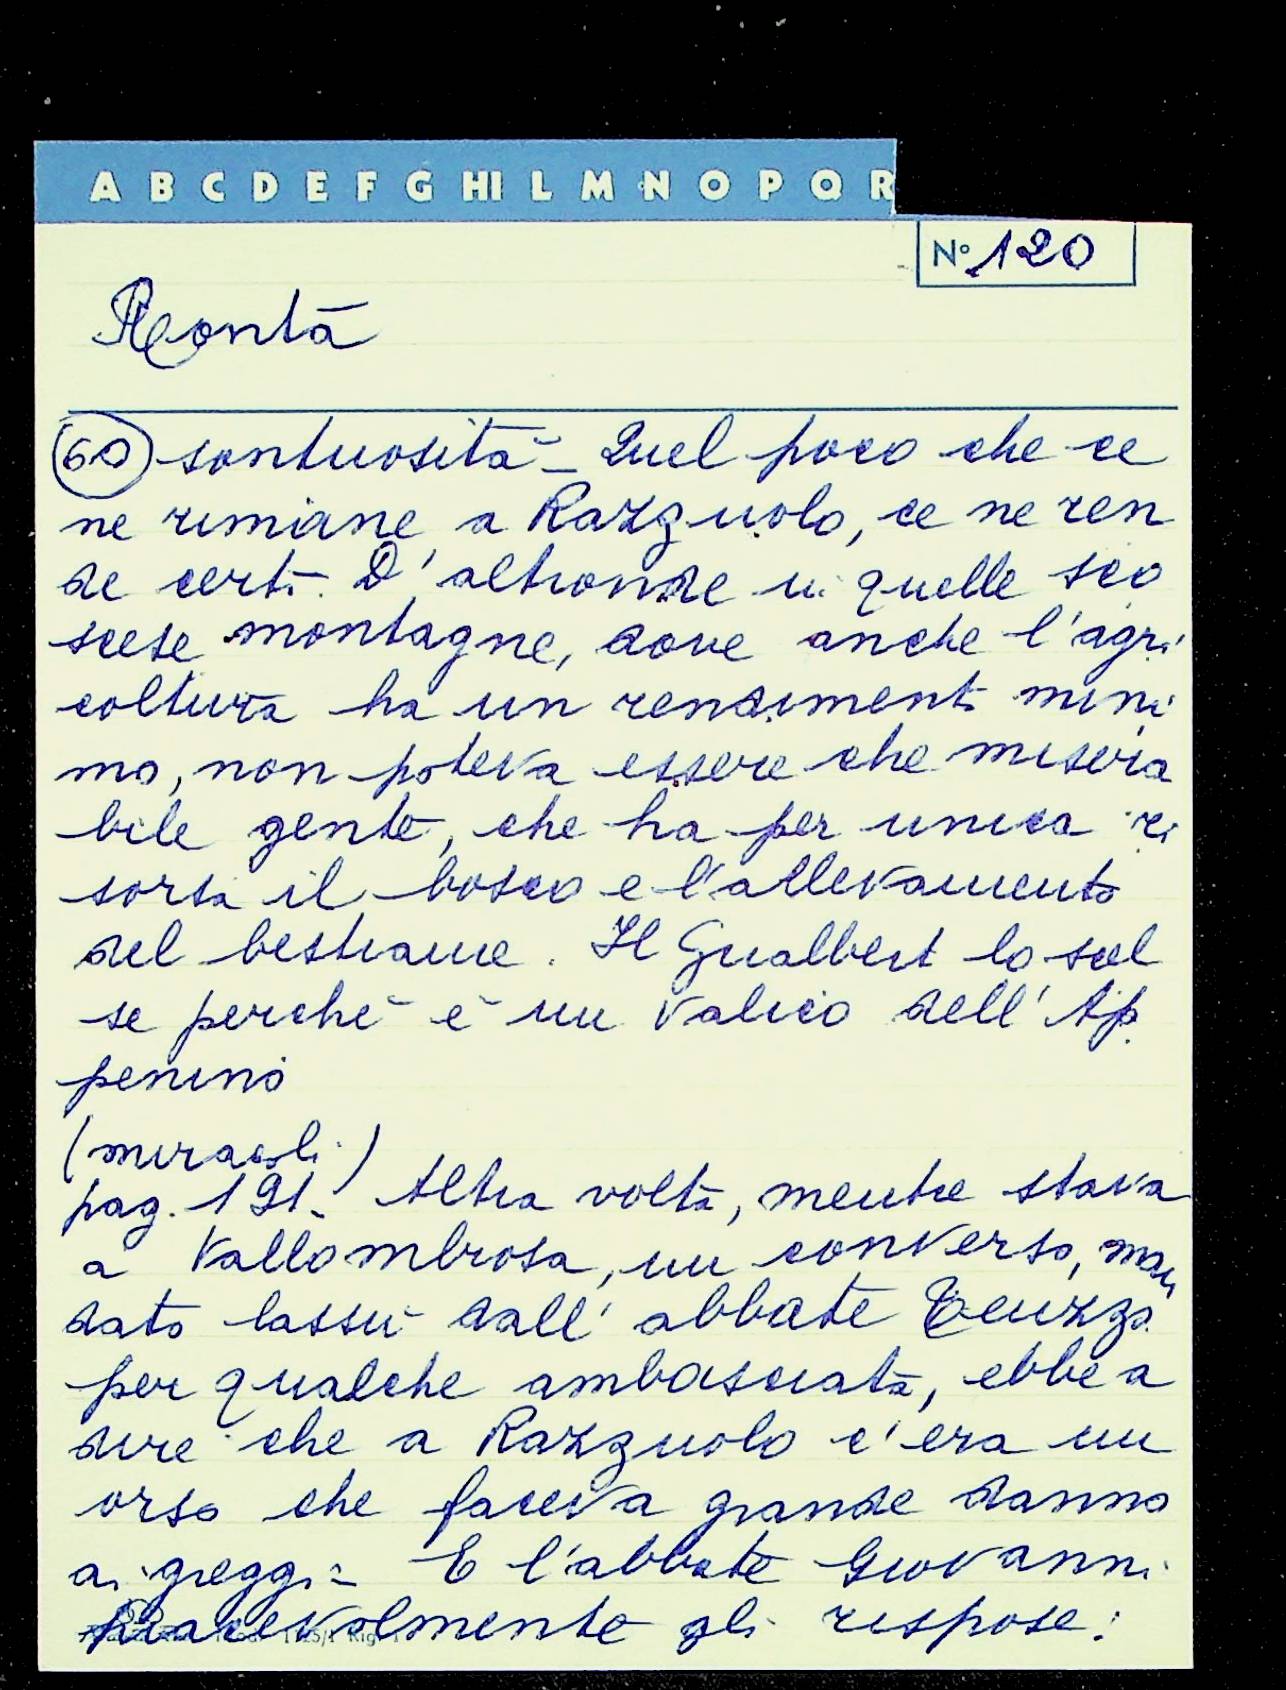 A B C D E F G HI L M N O P Q R
N° 120
Rontà
60 sontuosità - Quel poco che ce
ne rimane a Razzuolo, ce ne ren
de certi. D'altronde in quelle sco
scese montagne, dove anche l'agri
coltura ha un rendimento mini
mo, non poteva essere che misera
bile gente, che ha per unica ri
sorsa il bosco e l'allevamento
del bestiame. Il Gualberto lo scel
se perché è un valico dell'Ap
penino
(miracoli)
pag. 191. Altra volta, mentre stava
a Vallombrosa, un converso, man
dato lassù dall'abbate Teuzzo
per qualche ambasciata, ebbe a
dire che a Razzuolo c'era un
orso che faceva grande danno
ai greggi - E l'abbate Giovanni
piacevolmente gli rispose: